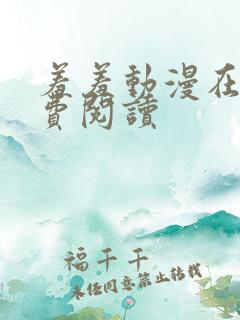 羞羞動漫在
費閱讀
福千千
未經同意禁止轉載